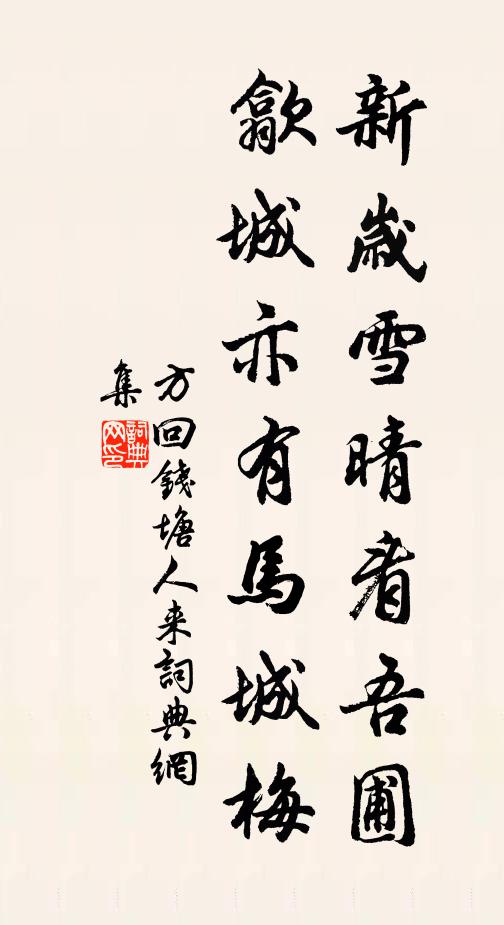 新歲雪晴看吾圃
歙城亦有馬城梅
方回錢塘人来詞典網
集
詞典网印